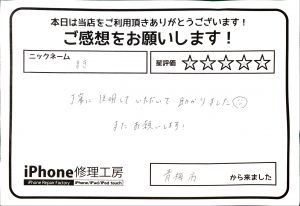 本日は当店をご利用頂きありがとうございます！
ご感想をお願いします！
ニックネーム
まき
星評価 ☆☆☆☆☆
丁寧に説明していただいて助かりました
またお願いします！
iPhone修理工房
iPhone Repair Factory iPhone/iPad/iPod touch
青梅市 から来ました